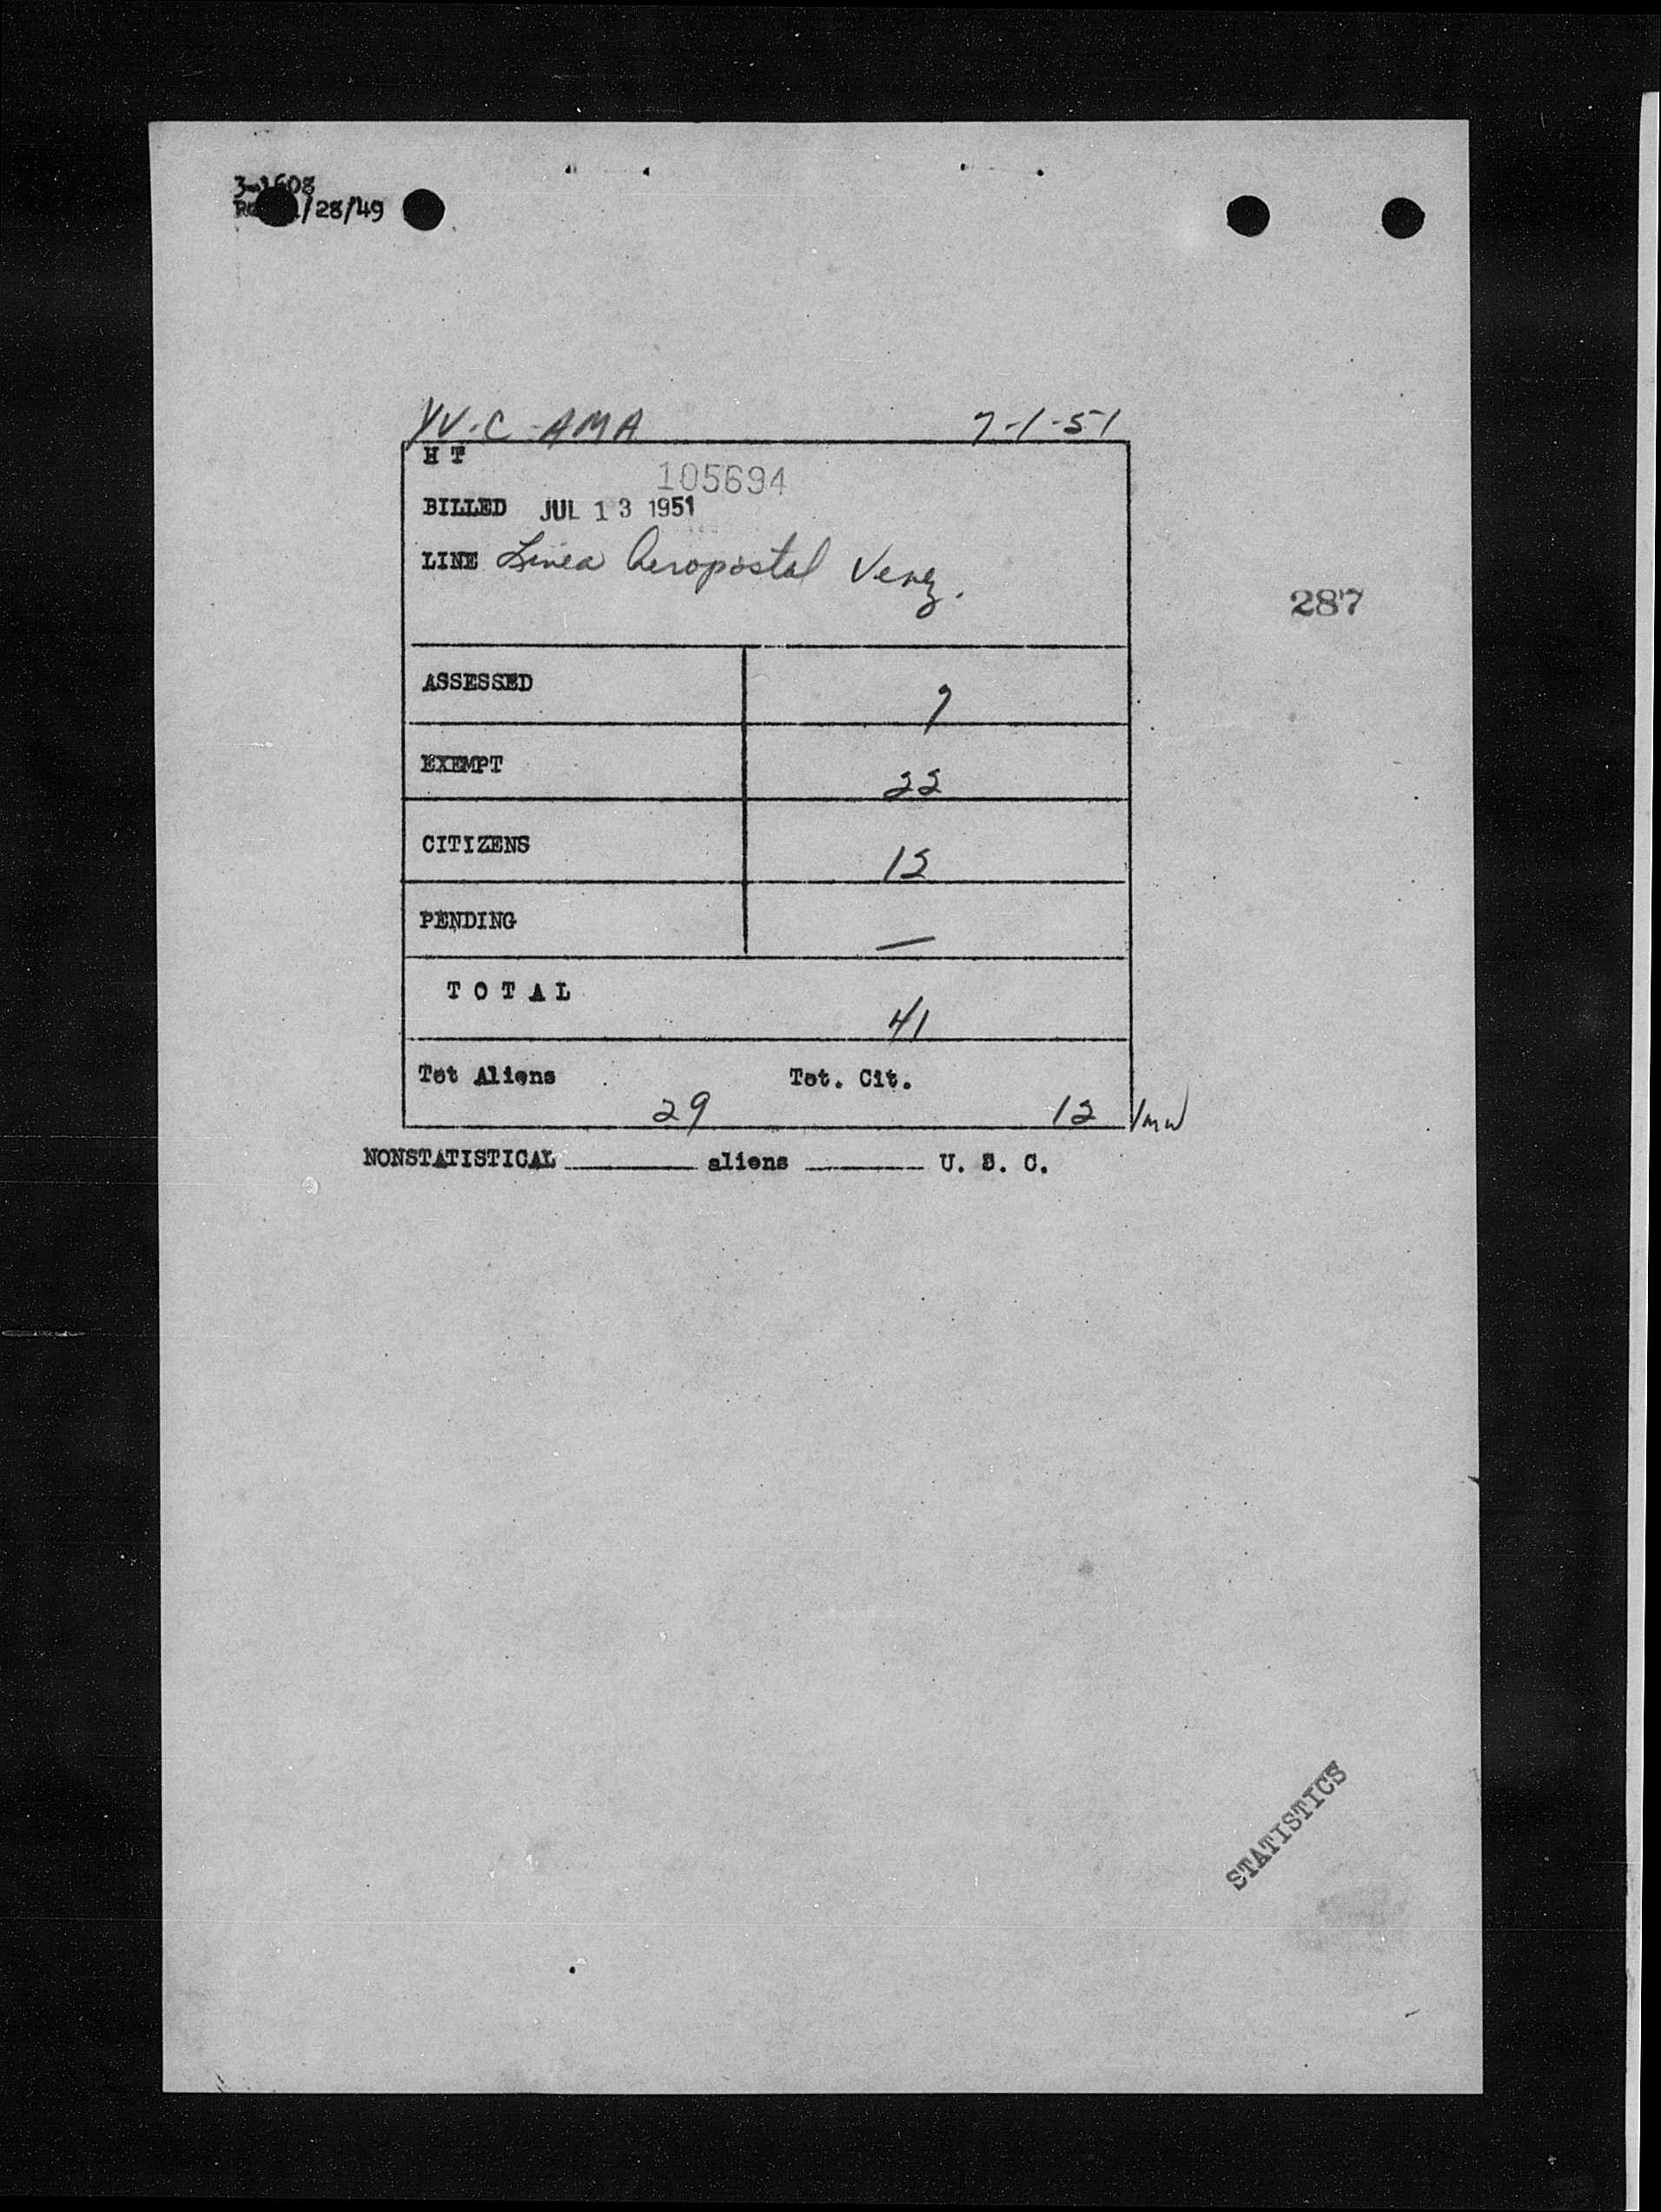 3-1608
/28/49
YV-C-AMA 7-1-51
H T
105694
BILLED JUL 13 1951
LINE Linea Aeropostal Venez.
287
ASSESSED 7
EXEMPT 22
CITIZENS 12
PENDING —
TOTAL 41
Tot Aliens Tot. Cit.
29 12
NONSTATISTICAL ______ aliens ______ U. S. C.
STATISTICS